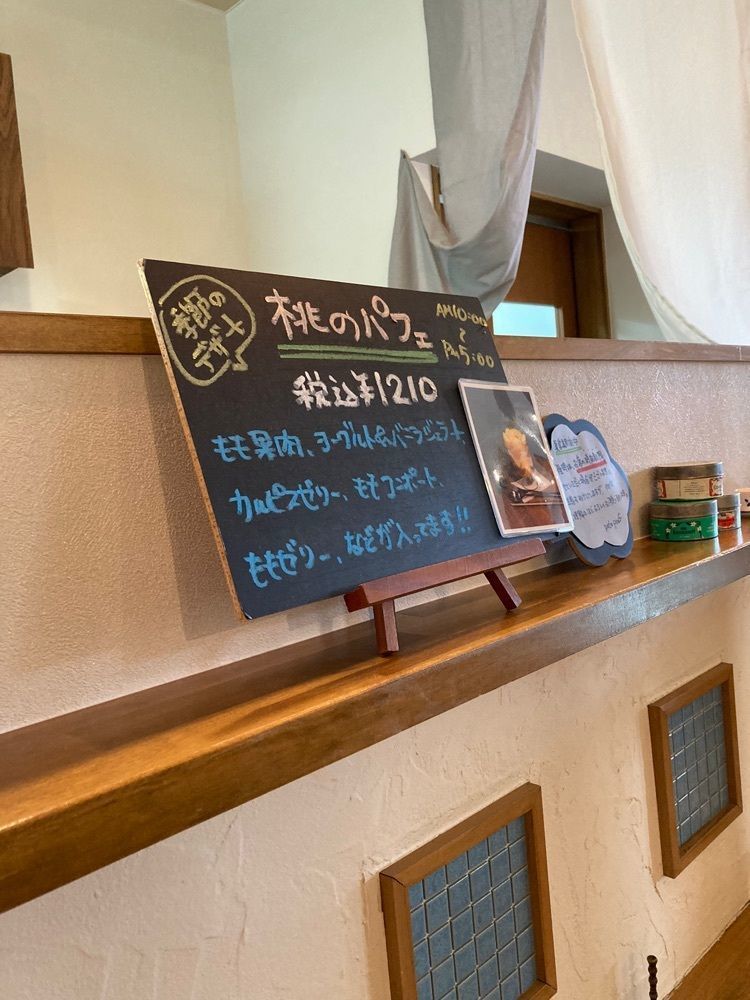 季節の
デザート
桃のパフェ
AM10:00
～
PM5:00
税込¥1210
もも果肉、ヨーグルト&バニラジェラート、
カルピスゼリー、ももコンポート、
ももゼリー、などが入ってます!!